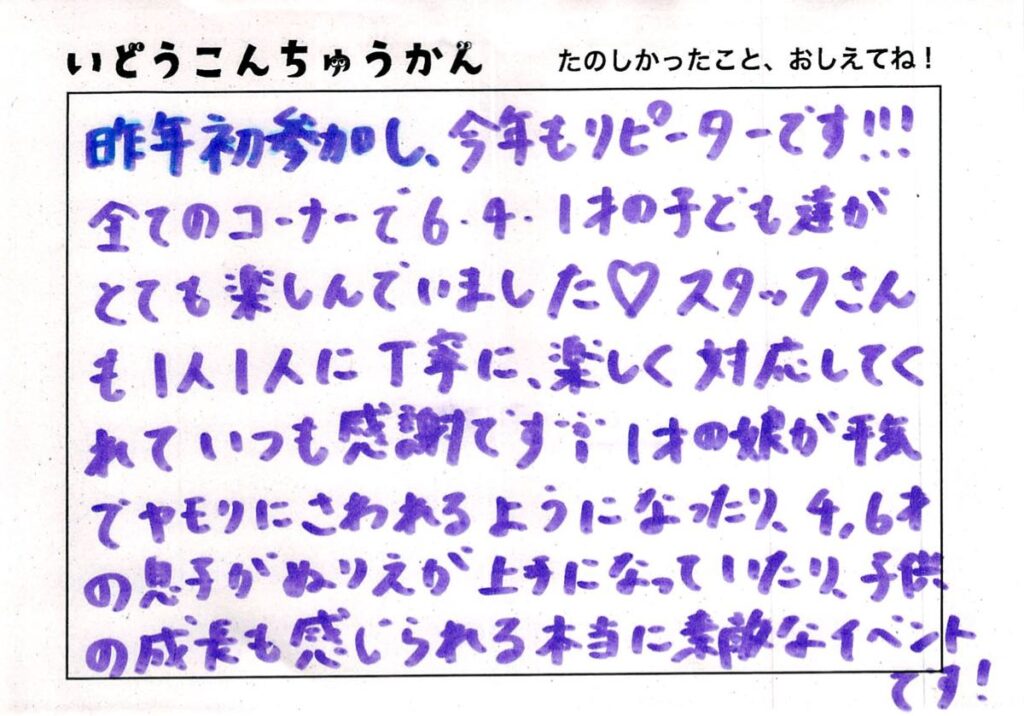 いどうこんちゅうかん
たのしかったこと、おしえてね！
昨年初参加し、今年もリピーターです!!!
全てのコーナーで6・4・1才の子ども達が
とても楽しんでいました♡スタッフさん
も1人1人に丁寧に、楽しく対応してく
れていつも感謝です 1才の娘が平気
でヤモリにさわれるようになったり、4,6才
の息子がぬりえが上手になっていたり、子供
の成長も感じられる本当に素敵なイベント
です!